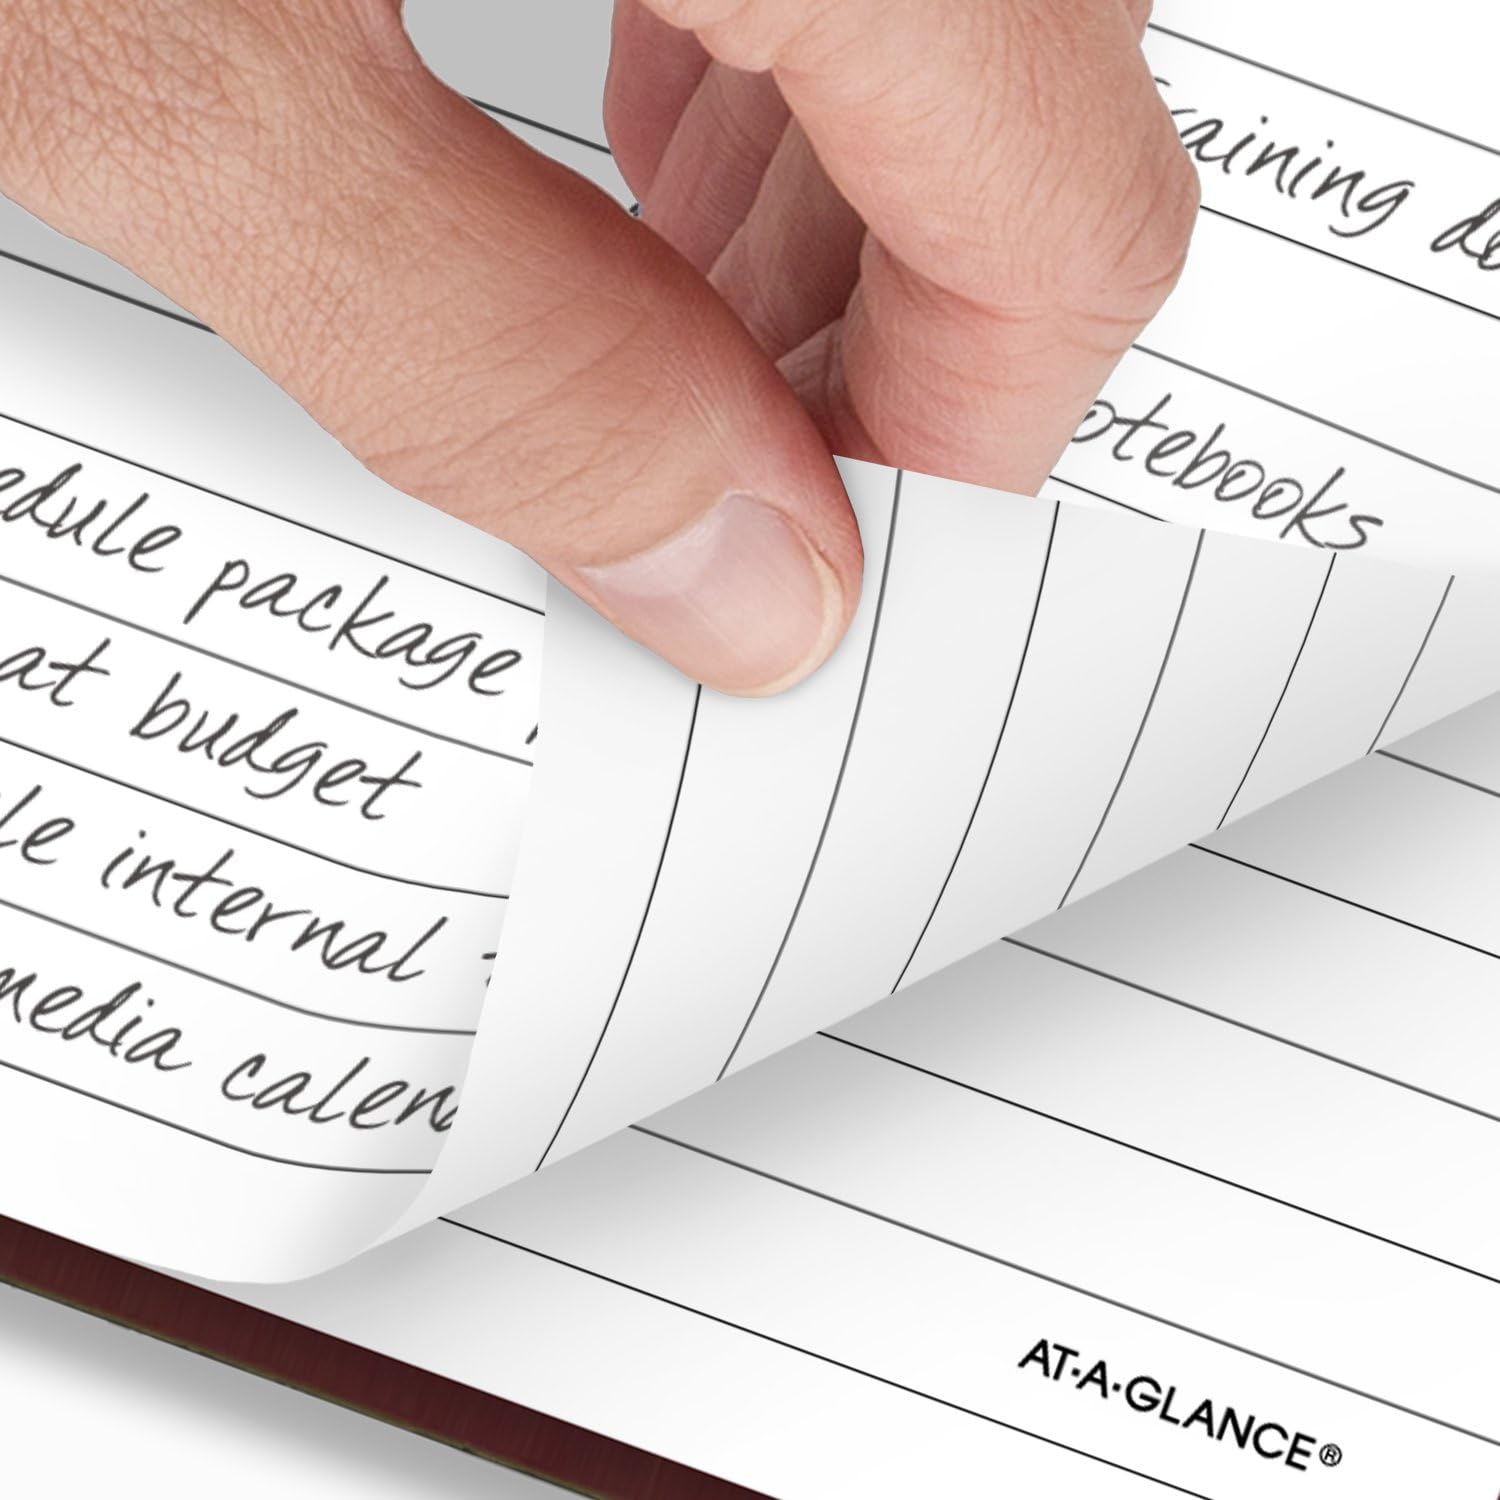 raining
otebooks
edule package
at budget
le internal
media calen
AT-A-GLANCE®